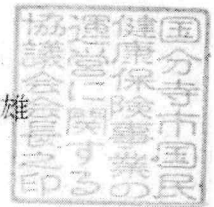 国分寺市国民
健康保険事業の
運営に関する
協議会会長之印
雄